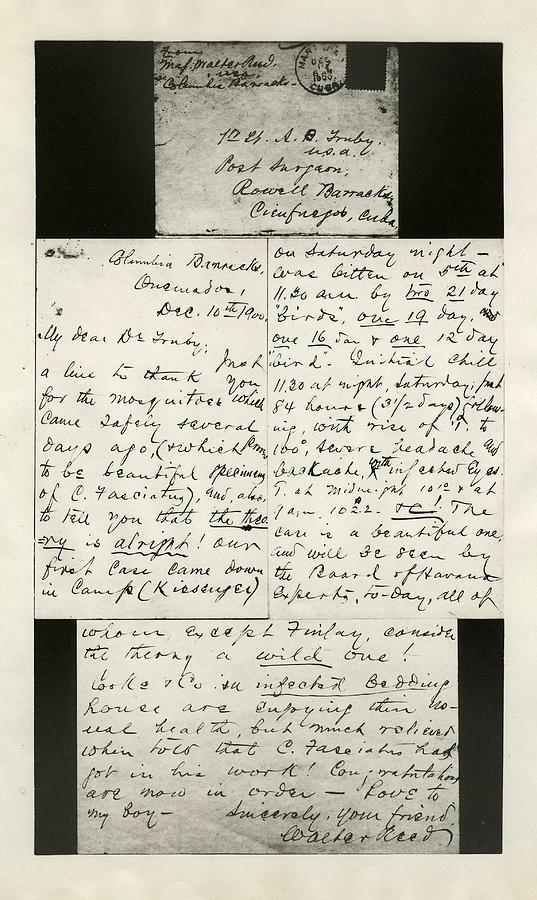 From
Maj. Walter Reed,
U.S.A.
Columbia Barracks
CUBA
1st Lt. A. S. Truby,
U.S.A.
Post Surgeon,
Rowell Barracks,
Cienfuegos, Cuba
Columbia Barracks,
Quemados,
Dec. 10th 1900
My dear Dr Truby;
Just
a line to thank you
for the mosquitoes which
came safely several
days ago, (& which prove
to be beautiful specimens
of C. Fasciatus), and, also,
to tell you that the theo-
ry is alright! Our
first case came down
in Camp (Kissenger)
on Saturday night –
was bitten on 5th at
11.30 am by two 21 day
"birds", one 19 day, and
one 16 day & one 12 day
"bird". Initial chill
11.30 at night, Saturday, just
84 hours (3 1/2 days) follow-
ing, with rise of T. to
100°, severe headache and
backache, with infected eyes.
T. at midnight &
at
1 am. 102.2 – &c! The
case is a beautiful one,
and will be seen by
the Board of Havana
Experts, to-day, all of
whom, except Finlay, consider
the theory a wild one!
Cooke & Co in infected bedding
house are enjoying their us-
ual health, but much relieved
when told that C. Fasciatus had
got in his work! Congratulations
are now in order – Love to
my boy – Sincerely, your friend,
Walter Reed